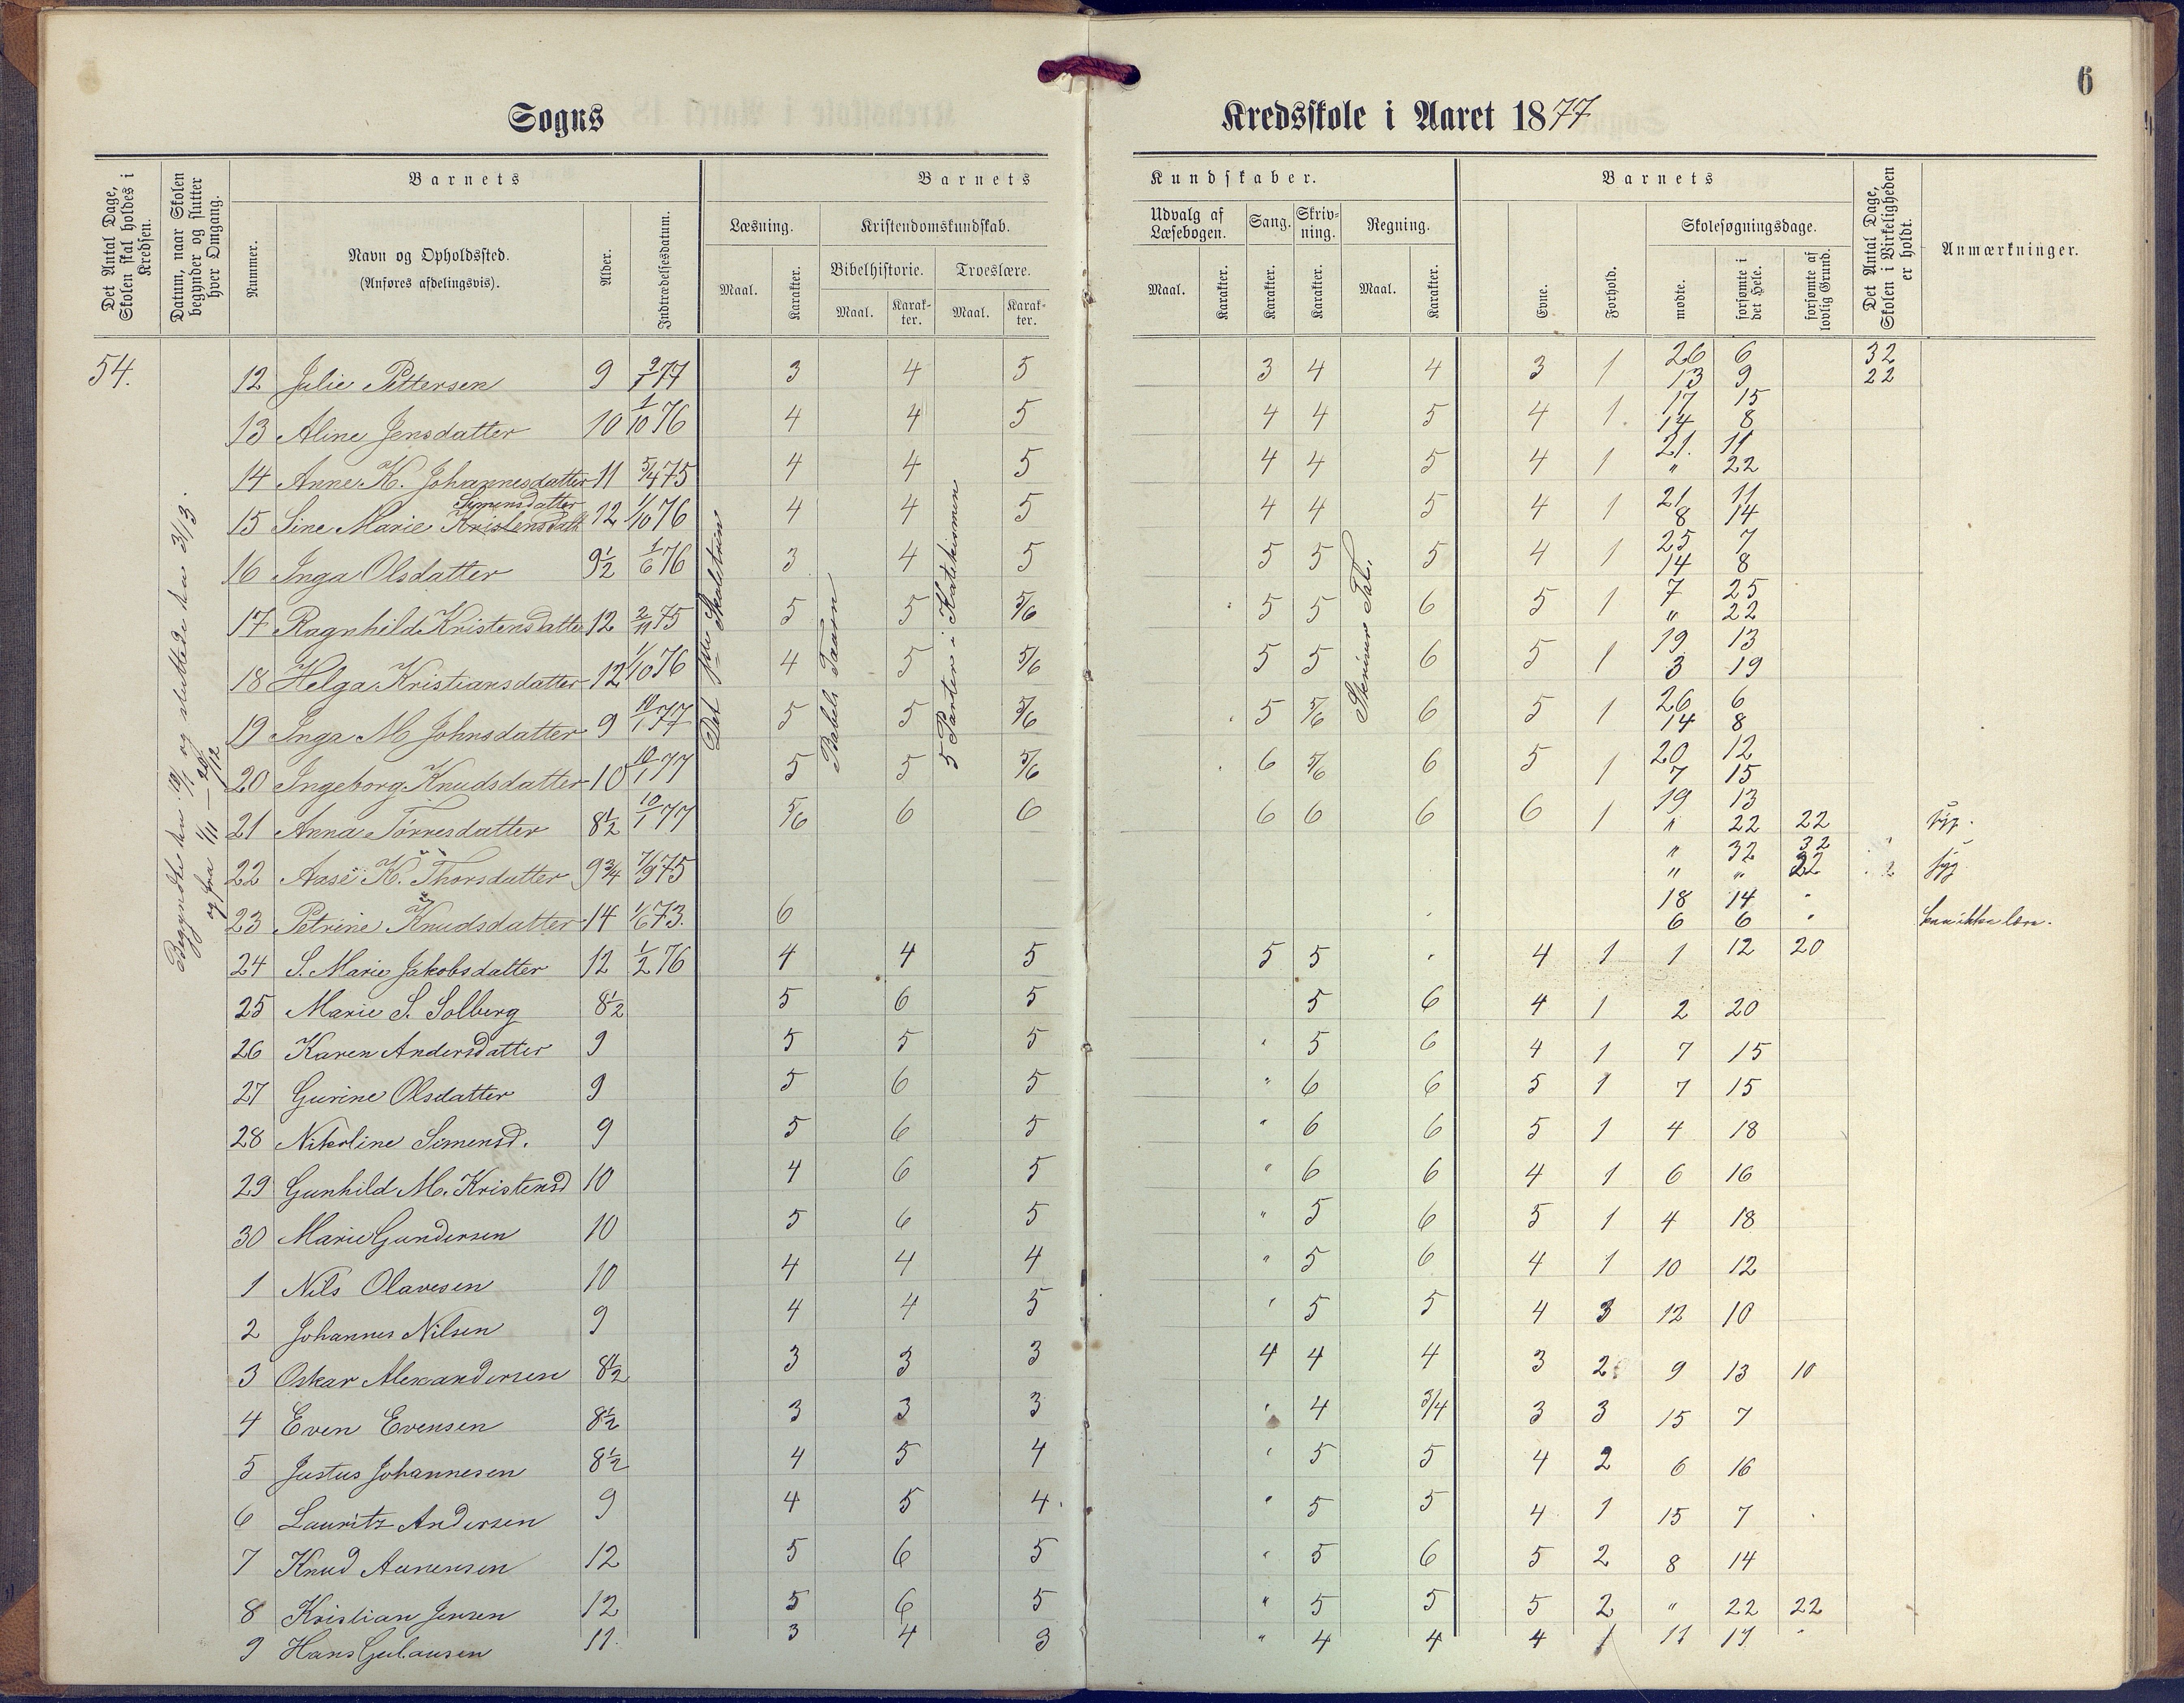 6
Sogns Kredsskole i Aaret 1877
Det Antal Dage, Skolen skal holdes i Kredsen.
Datum, naar Skolen begynder og slutter hver Omgang.
Barnets
Nummer.
Navn og Opholdssted.
(Anføres afdelingsvis).
Alder.
Indtrædelsesdatum.
Barnets Kundskaber.
Læsning.
Maal.
Karakter.
Kristendomskundskab.
Bibelhistorie.
Maal.
Karakter.
Troeslære.
Maal.
Karakter.
Udvalg af Læsebogen.
Maal.
Karakter.
Sang.
Karakter.
Skrivning.
Karakter.
Regning.
Maal.
Karakter.
Barnets
Evne.
Forhold.
Skolesøgningsdage.
mødte.
forsømte i det Hele.
forsømte af lovlig Grund.
Det Antal Dage, Skolen i Virkeligheden er holdt.
Anmærkninger.
54.
Begyndte den 10/1 og sluttede den 3/13.
og fra 1/11 — 20/12
Babels Taarn
5 Parter i Katekismen
12 Julie Pettersen 9 9/1 77 3 4 5 3 4 4 3 1 26 6 32
13 9 22
13 Aline Jensdatter 10 1/10 76 4 4 5 4 4 5 4 1 17 15
14 8
14 Anne K. Johannesdatter 11 5/4 75 4 4 5 4 4 5 4 1 21. 11
" 22
Simensdatter
15 Sine Marie Kristensdatt 12 1/10 76 4 4 5 4 4 5 4 1 21 11
8 14
16 Inga Olsdatter 9½ 1/6 76 3 4 5 5 5 5 4 1 25 7
14 8
17 Ragnhild Kristensdatter 12 2/11 75 5 5 5/6 5 5 6 5 1 7 25
" 22
18 Helga Kristiansdatter 12 1/10 76 4 5 5/6 5 5 6 5 1 19 13
3 19
19 Inga M Johnsdatter 9 10/1 77 5 5 5/6 5 5/6 6 5 1 26 6
14 8
20 Ingeborg Knudsdatter 10 10/1 77 5 5 5/6 6 5/6 6 5 1 20 12
7 15
21 Anna Tørresdatter 8½ 10/1 77 5/6 6 6 6 6 6 6 1 19 13
" 22 22 syg.
22 Aase K. Thorsdatter 9¾ 7/9 75 " 32 32
" " 22 syg
23 Petrine Knudsdatter 14 1/6 73. 6 18 14 "
6 6 " kan ikke læse.
24 S. Marie Jakobsdatter 12 1/2 76 4 4 5 5 5 4 1 1 12 20
25 Marie S. Solberg 8½ 5 6 5 5 6 4 1 2 20
26 Karen Andersdatter 9 5 5 5 " 5 6 4 1 7 15
27 Gurine Olsdatter 9 5 6 5 " 6 6 5 1 7 15
28 Nikoline Simensd. 9 5 6 5 " 6 6 5 1 4 18
29 Gunhild M. Kristensd 10 4 6 5 " 6 6 4 1 6 16
30 Marie Gundersen 10 5 6 5 " 5 6 5 1 4 18
1 Nils Olavesen 10 4 4 4 " 5 6 4 1 10 12
2 Johannes Nilsen 9 4 4 5 " 5 5 4 3 12 10
3 Oskar Alexandersen 8½ 3 3 3 4 4 4 3 2 9 13 10
4 Even Evensen 8½ 3 3 3 " 4 3/4 3 3 15 7
5 Justus Johannesen 8½ 4 5 4 " 5 5 4 2 6 16
6 Lauritz Andersen 9 4 5 4 " 5 5 4 1 15 7
7 Knud Aanensen 12 5 6 5 " 5 6 5 2 8 14
8 Kristian Jensen 12 5 6 5 " 5 5 5 2 " 22 22
9 Hans Gulausen 11. 3 4 3 " 4 4 4 1 11 11 "